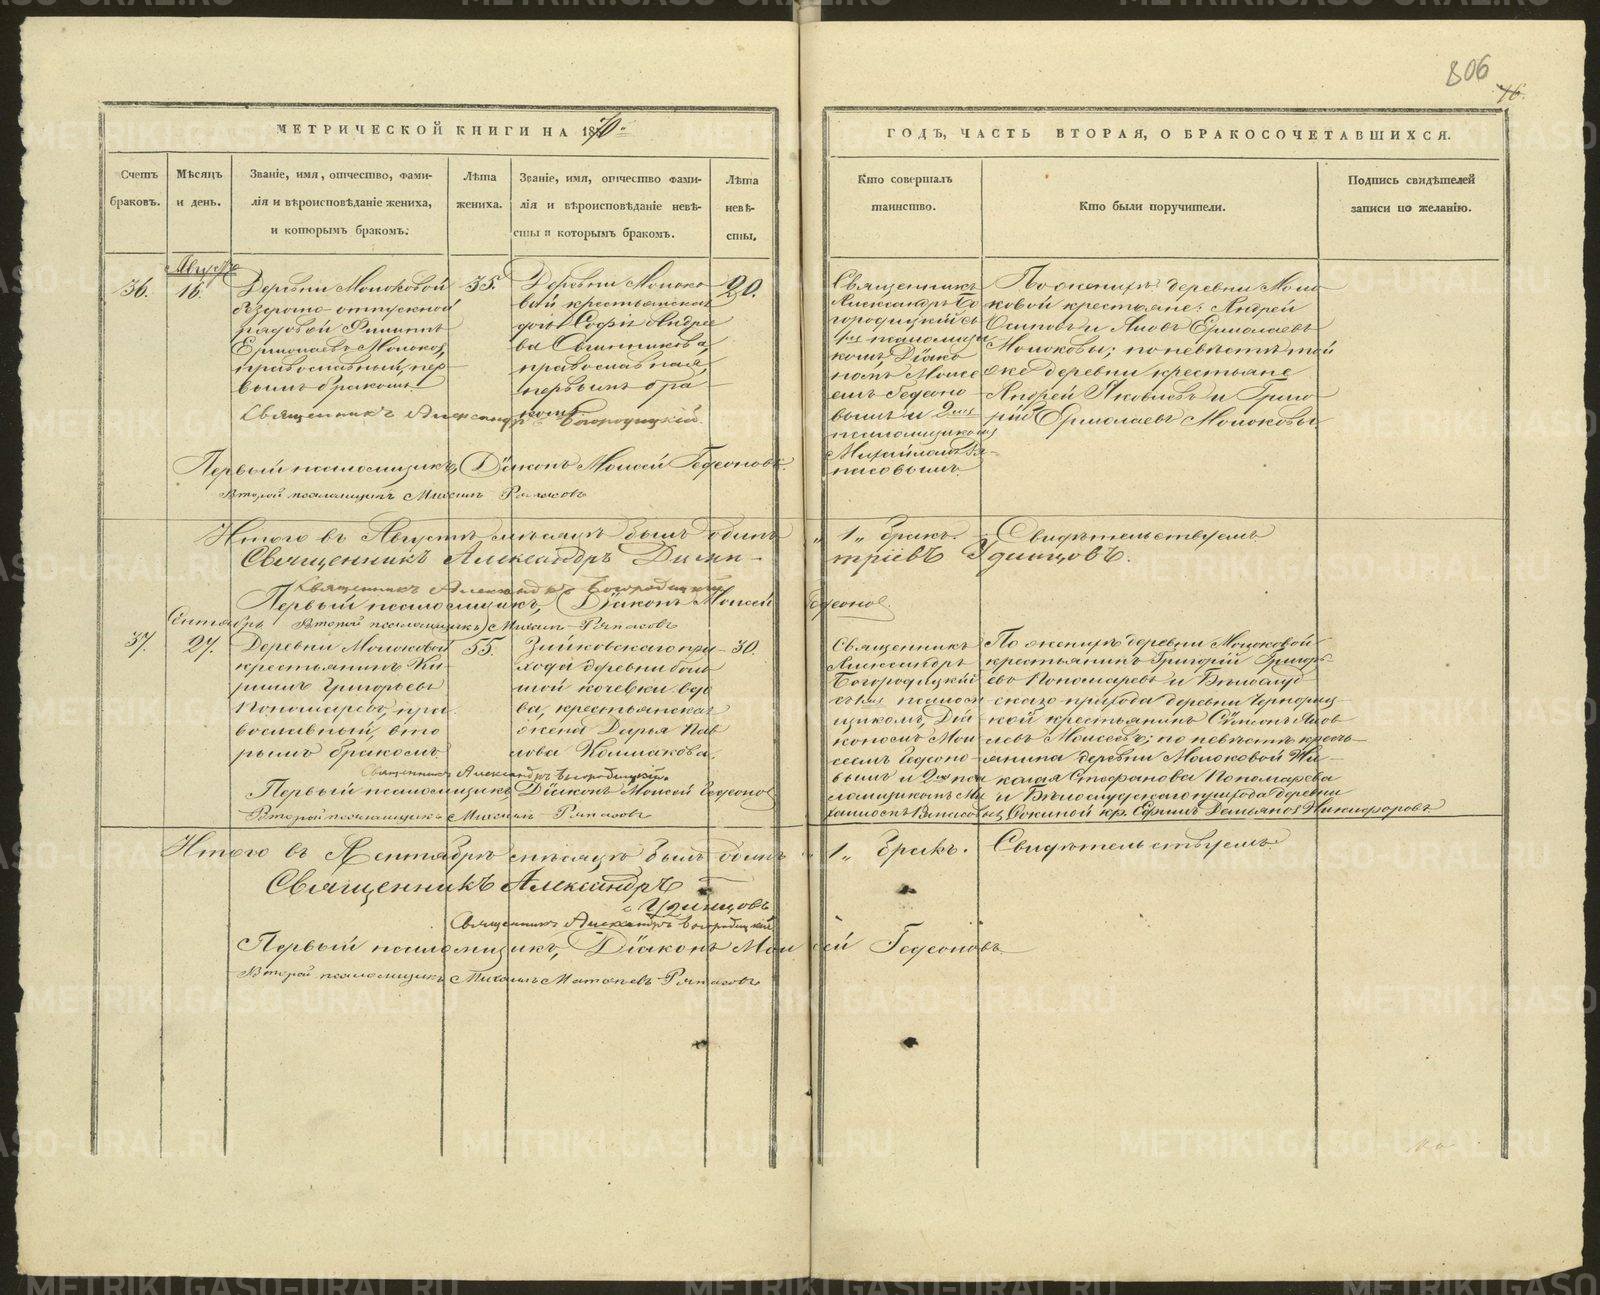 806
16.
МЕТРИЧЕСКОЙ КНИГИ НА 1870.
ГОДЪ, ЧАСТЬ ВТОРАЯ, О БРАКОСОЧЕТАВШИХСЯ.
Счетъ браковъ.
Мѣсяцъ и день.
Званіе, имя, отчество, фами-
лія и вѣроисповѣданіе жениха,
и которымъ бракомъ.
Лѣта жениха.
Званіе, имя, отчество фами-
лія и вѣроисповѣданіе невѣ-
сты и которымъ бракомъ.
Лѣта невѣ-
сты.
Кто совершалъ
таинство.
Кто были поручители.
Подпись свидѣтелей
записи по желанію.
Августъ
36.
16.
Деревни Молоковой
безсрочно-отпускной
рядовой Филиппъ
Ермолаевъ Молоковъ,
православный, пер-
вымъ бракомъ
35.
Деревни Молоко-
вой крестьянская
дочь Софія Андрее-
ва Овчинникова,
православная,
первымъ бра-
комъ.
20.
Священникъ
Александръ Бо-
городицкій съ
1мъ псаломщи-
комъ, Діако-
номъ Моисе-
емъ Гедеоно-
вымъ и 2мъ
псаломщикомъ
Михайломъ Ря-
пасовымъ
По женихѣ: деревни Моло-
ковой крестьяне: Андрей
Осиповъ и Яковъ Ермолаевъ
Молоковы; по невѣстѣ той
же деревни крестьяне
Андрей Яковлевъ и Григо-
рій Ермолаевъ Молоковы
Священникъ Александръ Богородицкій.
Первый псаломщикъ, Діаконъ Моисей Гедеоновъ.
Второй псаломщикъ Михаилъ Ряпасовъ
Итого въ Августѣ мѣсяцѣ былъ одинъ „1„ бракъ. Свидѣтельствуемъ
Священникъ Александръ Дими-
тріевъ Удинцовъ.
Священникъ Александръ Богородицкій
Первый псаломщикъ, Діаконъ Моисей Гедеоновъ.
Второй псаломщикъ Михаилъ Ряпасовъ
Сентябрь
37.
27.
Деревни Молоковой
крестьянинъ Ки-
риллъ Григорьевъ
Пономаревъ, пра-
вославный, вто-
рымъ бракомъ.
55.
Зайковскаго при-
хода деревни боль-
шой кочевки вдо-
ва, крестьянская
жена Дарья Пав-
лова Колмакова.
30.
Священникъ
Александръ
Богородицкій
съ 1мъ псалом-
щикомъ, Діа-
кономъ Мои-
сеемъ Гедеоно-
вымъ и 2мъ пса-
ломщикомъ Ми-
хаиломъ Ряпасовымъ
По женихѣ деревни Молоковой
крестьянинъ Григорій Григорь-
евъ Пономаревъ и Бѣлослуд-
скаго прихода деревни
крестьянинъ Сѵмеонъ Яков-
левъ Моисеевъ; по невѣстѣ кресть-
янина деревни Молоковой Ни-
колая Стефанова Пономарева
и Бѣлослудскаго прихода деревни
кр. Ефимъ Демьяновъ Никифоровъ
Священникъ Александръ Богородицкій.
Первый псаломщикъ Діаконъ Моисей Гедеоновъ
Второй псаломщикъ Михаилъ Ряпасовъ
Итого въ Сентябрѣ мѣсяцѣ былъ одинъ „1„ бракъ. Свидѣтельствуемъ
Священникъ Александръ
Удинцовъ
Священникъ Александръ Богородицкій
Первый псаломщикъ, Діаконъ Моисей Гедеоновъ
Второй псаломщикъ Михаилъ Ряпасовъ
METRIKI.GASO-URAL.RU